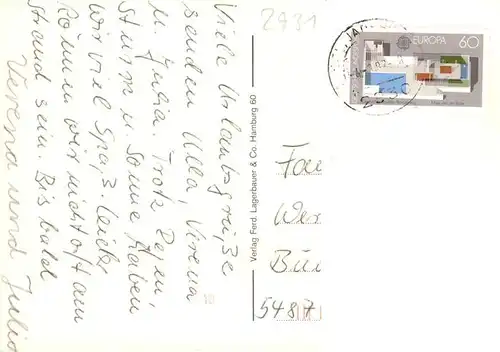 Viele Urlaubsgrüße
senden Ulla, Verena
u. Julia. Trotz Regen,
Sturm u. Sonne haben
wir viel Spaß. Leider
können wir nicht oft am
Strand sein. Bis bald
Verena und Julia
2931
Verlag Ferd. Lagerbauer & Co. Hamburg 60
10
EUROPA 60
Fam
Wer
Bü
5487